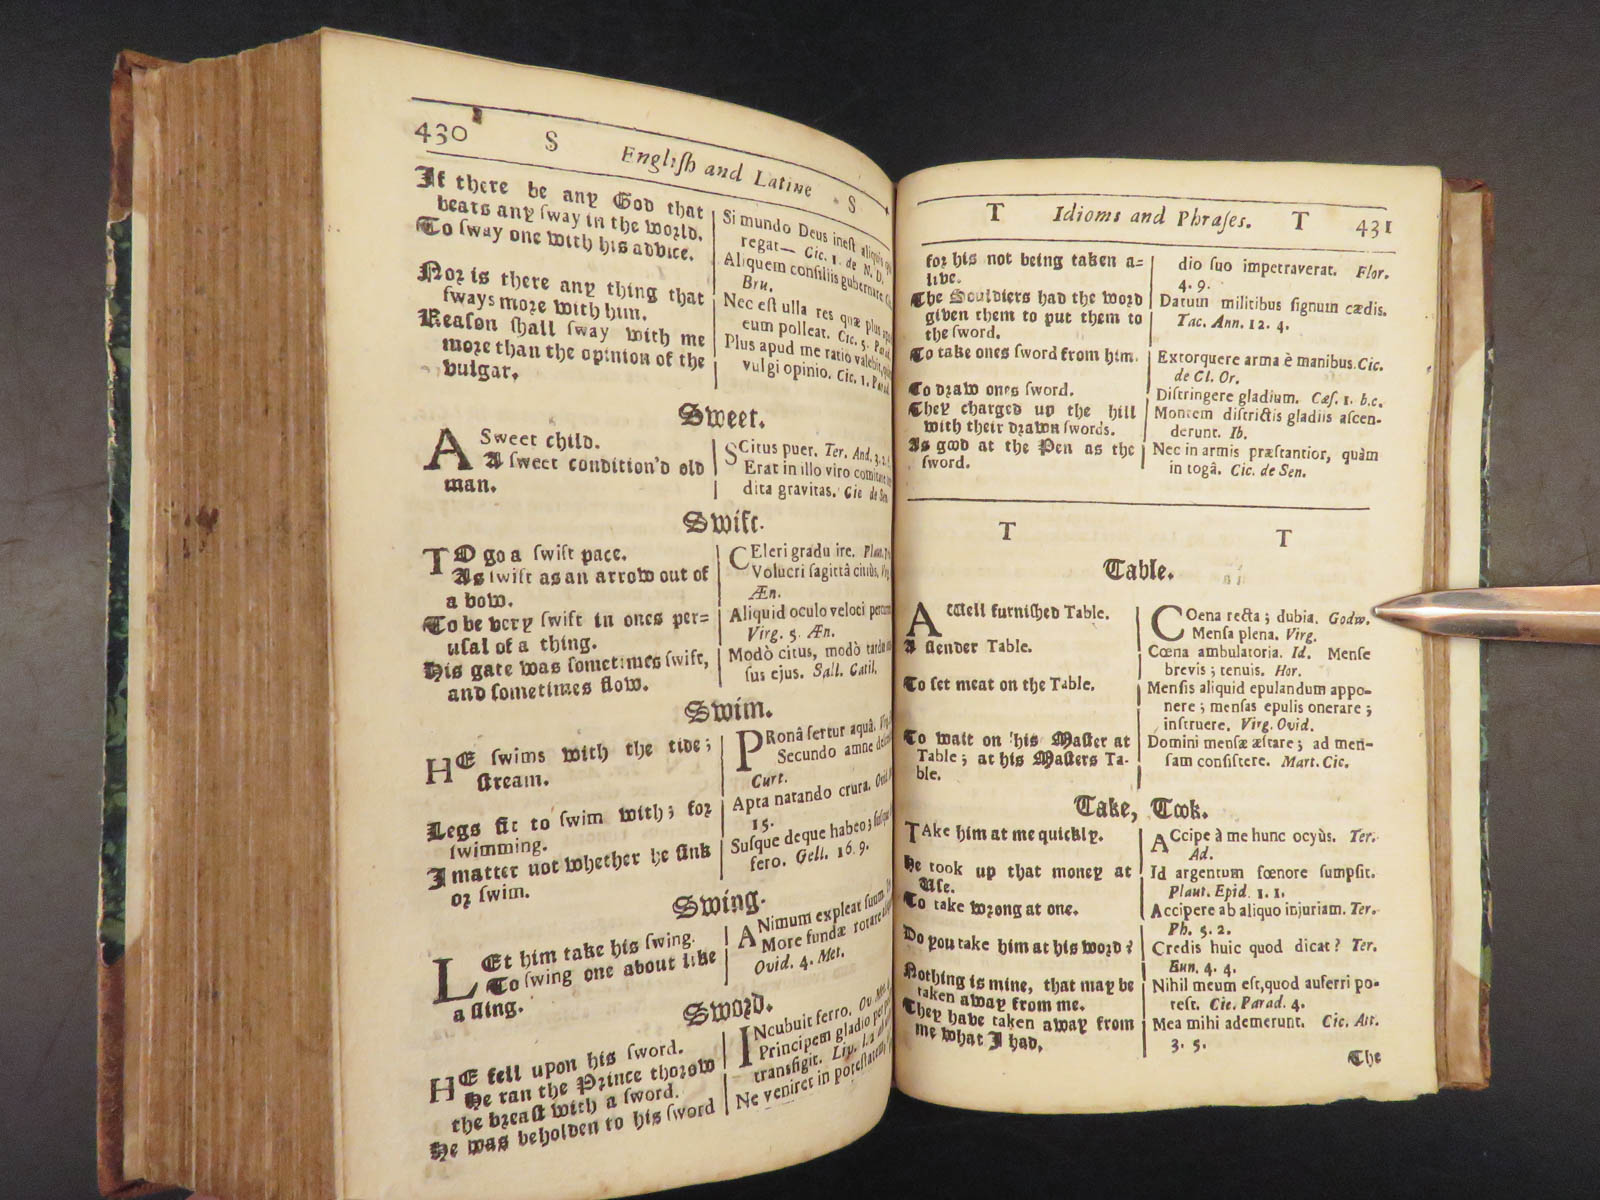 430 S Engliſh and Latine S
If there be any God that
bears any ſway in the world.
To ſway one with his advice.
Nor is there any thing that
ſways more with him.
Reaſon ſhall ſway with me
more than the opinion of the
vulgar.
Si mundo Deus ineſt aliquis
regat— Cic. 1. de N. D.
Aliquem conſiliis gubernare
Bru.
Nec eſt ulla res quæ plus apud
eum polleat. Cic. 5.
Plus apud me ratio valebit, quàm
vulgi opinio. Cic. 1. Parad.
Sweet.
A Sweet child.
A ſweet condition'd old
man.
SCitus puer. Ter. And. 3. 2.
Erat in illo viro
dita gravitas. Cic de Sen
Swift.
TO go a ſwift pace.
As ſwift as an arrow out of
a bow.
To be very ſwift in ones per-
uſal of a thing.
His gate was ſometimes ſwift,
and ſometimes ſlow.
CEleri gradu ire.
Volucri ſagittâ citiùs,
Æn.
Aliquid oculo veloci
Virg. 5. Æn.
Modò citus, modò
ſus ejus. Sall. Catil.
Swim.
HE ſwims with the tide;
ſtream.
Legs fit to ſwim with; for
ſwimming.
I matter not whether he ſink
or ſwim.
PRonâ fertur aquâ.
Secundo amne
Curt.
Apta natando crura.
15.
Suſque deque habeo;
fero. Gell. 16 9.
Swing.
LEt him take his ſwing.
To ſwing one about like
a ſling.
ANimum expleat ſuum.
More fundæ rotare
Ovid. 4. Met.
Sword.
HE fell upon his ſword.
He ran the Prince thorow
the breaſt with a ſword.
He was beholden to his ſword
INcubuit ferro.
Principem gladio per
transfigit.
Ne veniret in poteſtatem,
T Idioms and Phraſes. T 431
for his not being taken a-
live.
The Souldiers had the word
given them to put them to
the ſword.
To take ones ſword from him.
To draw ones ſword.
They charged up the hill
with their drawn ſwords.
As good at the Pen as the
ſword.
dio ſuo impetraverat. Flor.
4. 9.
Datum militibus ſignum cædis.
Tac. Ann. 12. 4.
Extorquere arma è manibus. Cic.
de Cl. Or.
Diſtringere gladium. Cæſ. 1. b.c.
Montem diſtrictis gladiis aſcen-
derunt. Ib.
Nec in armis præſtantior, quàm
in togâ. Cic. de Sen.
T T
Table.
A Well furniſhed Table.
A ſlender Table.
To ſet meat on the Table.
To wait on his Maſter at
Table; at his Maſters Ta-
ble.
COena recta; dubia. Godw.
Menſa plena. Virg.
Cœna ambulatoria. Id. Menſe
brevis; tenuis. Hor.
Menſis aliquid epulandum appo-
nere; menſas epulis onerare;
inſtruere. Virg. Ovid.
Domini menſæ aſtare; ad men-
ſam conſiſtere. Mart. Cic.
Take, Took.
TAke him at me quickly.
He took up that money at
Uſe.
To take wrong at one.
Do you take him at his word?
Nothing is mine, that may be
taken away from me.
They have taken away from
me what I had,
ACcipe à me hunc ocyùs. Ter.
Ad.
Id argentum fœnore ſumpſit.
Plaut. Epid. 1. 1.
Accipere ab aliquo injuriam. Ter.
Ph. 5. 2.
Credis huic quod dicat? Ter.
Eun. 4. 4.
Nihil meum eſt, quod auferri po-
teſt. Cic. Parad. 4.
Mea mihi ademerunt. Cic. Att.
3. 5.
The